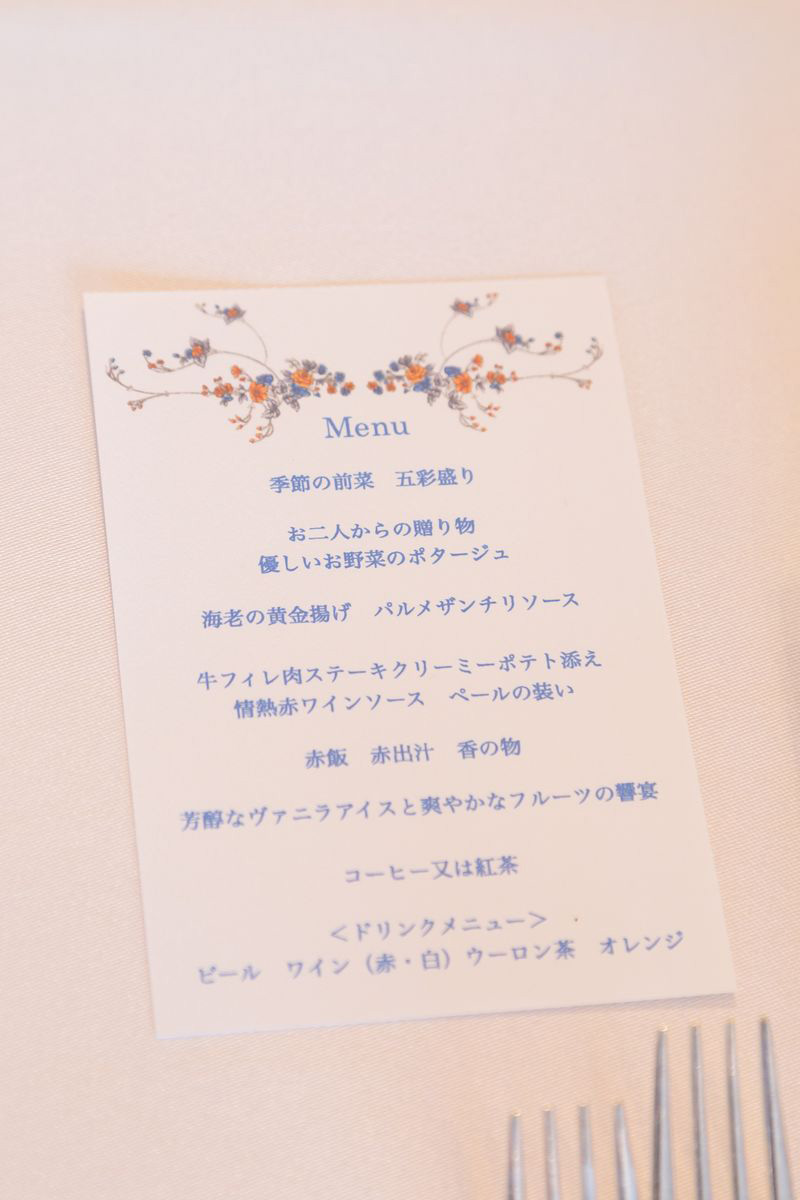 Menu
季節の前菜　五彩盛り
お二人からの贈り物
優しいお野菜のポタージュ
海老の黄金揚げ　パルメザンチリソース
牛フィレ肉ステーキクリーミーポテト添え
情熱赤ワインソース　ペールの装い
赤飯　赤出汁　香の物
芳醇なヴァニラアイスと爽やかなフルーツの饗宴
コーヒー又は紅茶
＜ドリンクメニュー＞
ビール　ワイン（赤・白）ウーロン茶　オレンジ